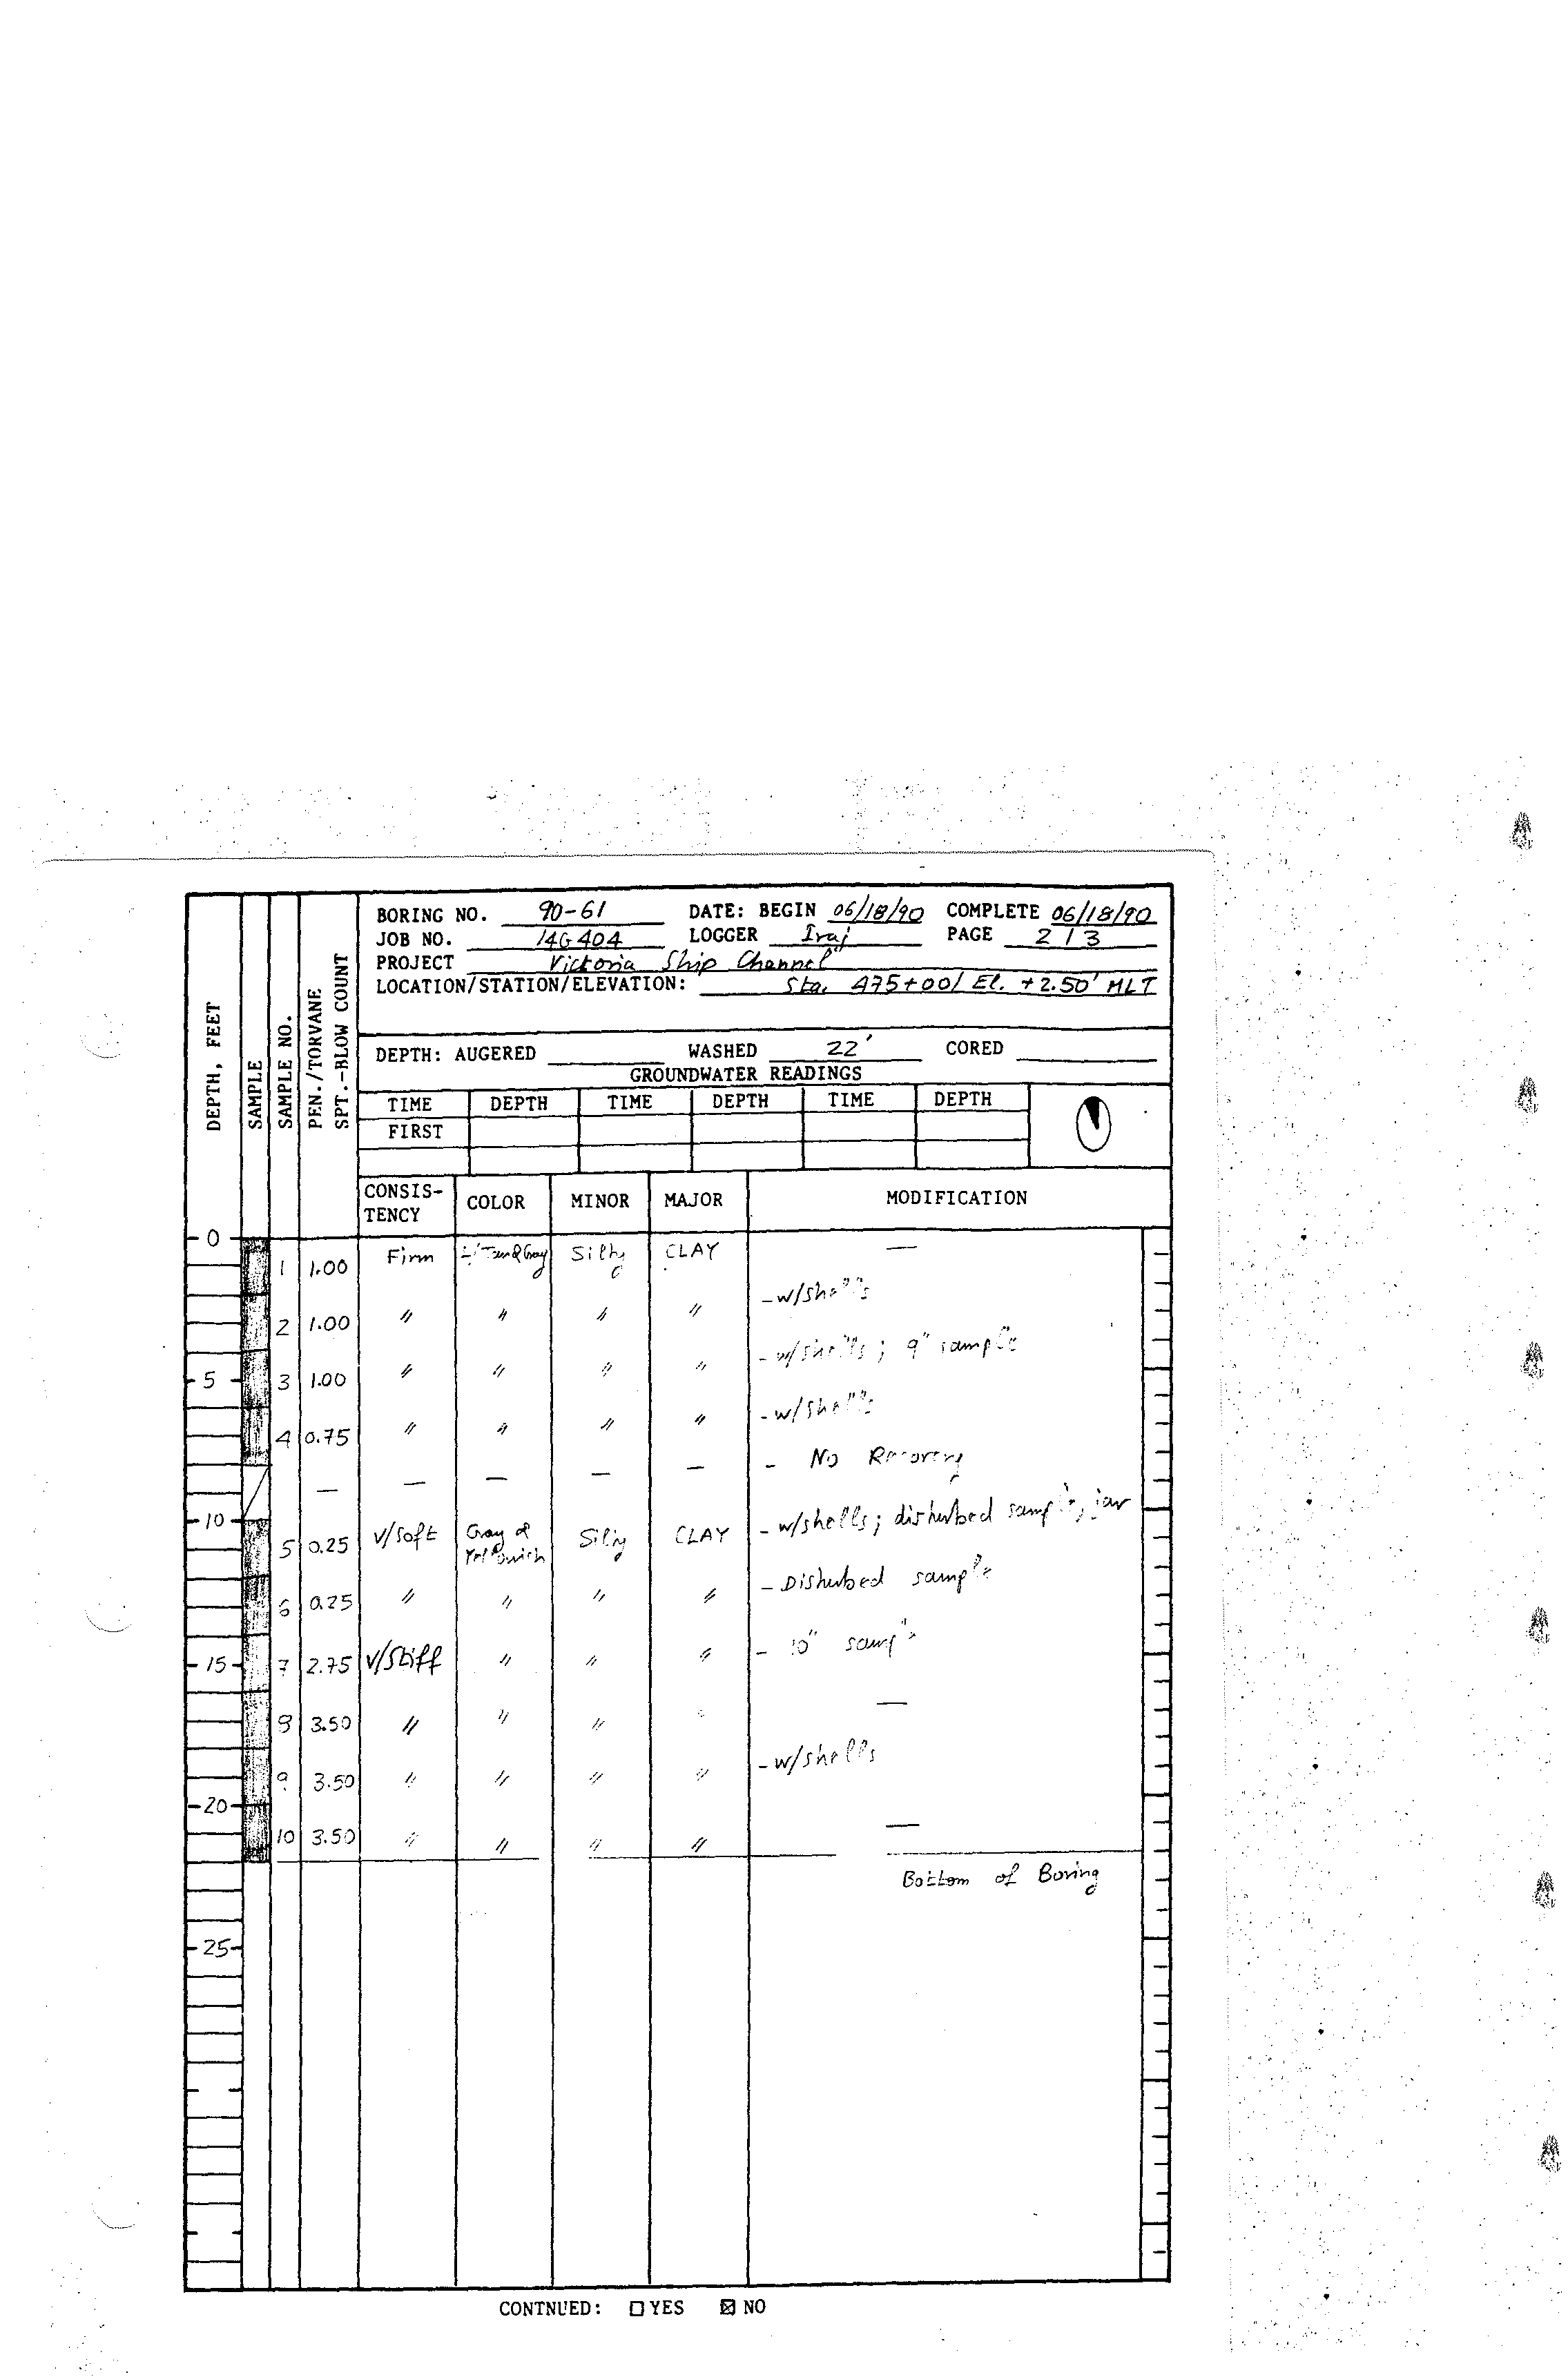 BORING NO. 90-61 DATE: BEGIN 06/18/90 COMPLETE 06/18/90
JOB NO. 14G404 LOGGER Iraj PAGE 2/3
PROJECT Victoria Ship Channel
LOCATION/STATION/ELEVATION: Sta. 475+00/ El. +2.50' MLT
DEPTH, FEET
SAMPLE
SAMPLE NO.
PEN./TORVANE
SPT.-BLOW COUNT
DEPTH: AUGERED WASHED 22' CORED
GROUNDWATER READINGS
TIME DEPTH TIME DEPTH TIME DEPTH
FIRST
CONSIS-
TENCY COLOR MINOR MAJOR MODIFICATION
0
1 1.00 Firm Tan & Gray Silty CLAY —
2 1.00 " " " " - w/shells
5 3 1.00 " " " " - w/shells; 9" sample
4 0.75 " " " " - w/shells
— — — — — - No Recovery
10
5 0.25 V/Soft Gray & Silty CLAY - w/shells; disturbed sample, jar
6 0.25 " " " " - Disturbed sample
15 7 2.75 V/Stiff " " " - 10" sample
8 3.50 " " " " —
9 3.50 " " " " - w/shells
20
10 3.50 " " " " —
Bottom of Boring
25
CONTNUED: □ YES ☒ NO